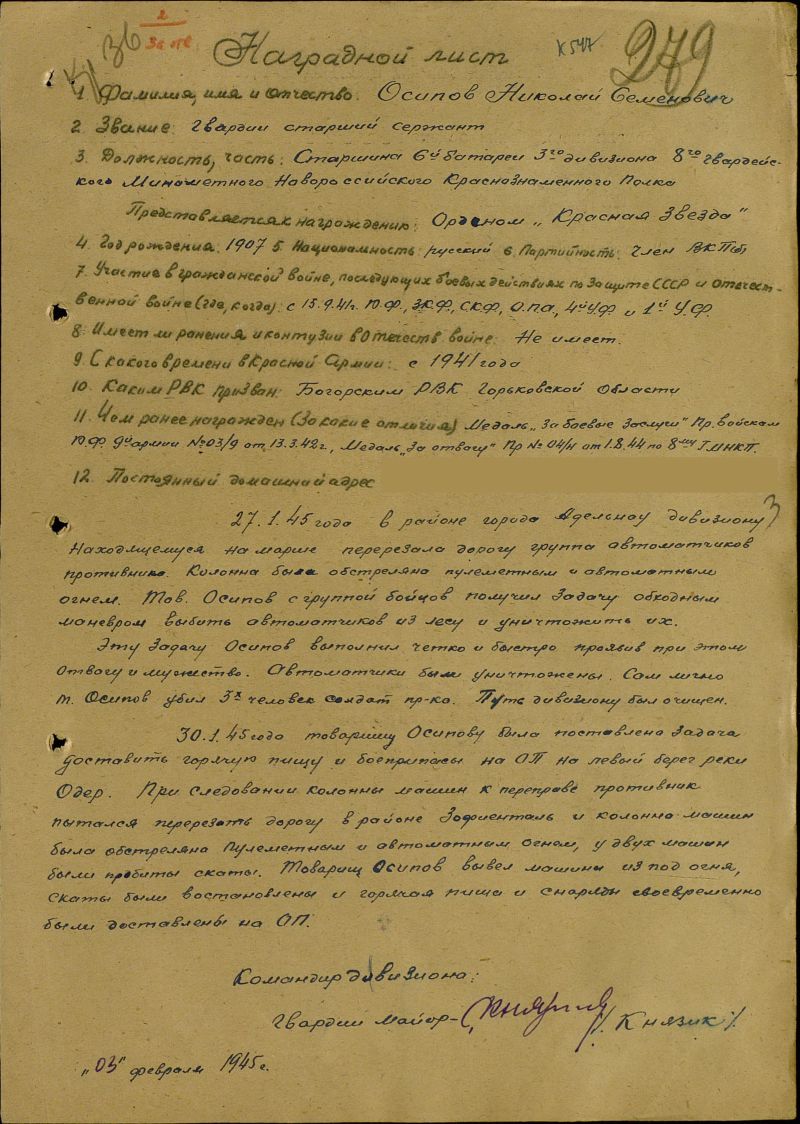 2
За отв
36
К 547
279
Наградной лист
1. Фамилия, имя и отчество: Осипов Николай Семенович
2. Звание: Гвардии старший сержант
3. Должность, часть: Старшина 6й батареи 3го дивизиона 8го Гвардейс-
кого Минометного Новороссийского Краснознаменного Полка
Представляется к награждению: Орденом „Красная Звезда"
4. Год рождения: 1907 5. Национальность: русский 6. Партийность: член ВКП(б)
7. Участие в гражданской войне, последующих боевых действиях по защите СССР и отечест-
венной войне (где, когда): с 15.9.41г. Ю.Ф., ЗКФ, СКФ, О.П.А, 4й УФ и 1й У.Ф.
8. Имеет ли ранения и контузии в Отечеств войне: Не имеет.
9. С какого времени в Красной Армии: с 1941 года
10. Каким РВК призван: Богорским РВК Горьковской Области
11. Чем ранее награжден (За какие отличия) Медаль „За боевые Заслуги" Пр. войскам
Ю.Ф. 9й армии № 03/9 от 13.3.42г., Медаль „За отвагу" Пр № 04/н от 1.8.44 по 8му ГМНКП.
12. Постоянный домашний адрес
27.1.45 года в районе города Адельнау дивизиону
находящемуся на марше перерезала дорогу группа автоматчиков
противника. Колонна была обстреляна пулеметным и автоматным
огнем. Тов. Осипов с группой бойцов получил задачу обходным
маневром выбить автоматчиков из лесу и уничтожить их.
Эту задачу Осипов выполнил четко и быстро проявив при этом
отвагу и мужество. Автоматчики были уничтожены. Сам лично
т. Осипов убил 3х человек солдат пр-ка. Путь дивизиону был очищен.
30.1.45 года товарищу Осипову была поставлена задача
доставить горячую пищу и боеприпасы на ОП на левый берег реки
Одер. При следовании колонны машин к переправе противник
пытался перерезать дорогу в районе Зофиенталь и колонна машин
была обстреляна пулеметным и автоматным огнем, у двух машин
были пробиты скаты. Товарищ Осипов вывел машины из под огня,
скаты были востановлены и горячая пища и снаряды своевременно
были доставлены на ОП.
Командир дивизиона:
Гвардии Майор- /Князик/.
„03" февраля 1945г.